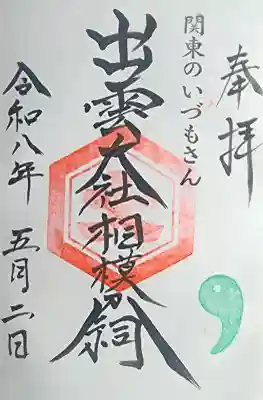 奉拝
関東のいづもさん
出雲大社相模分祠
令和八年 五月二日